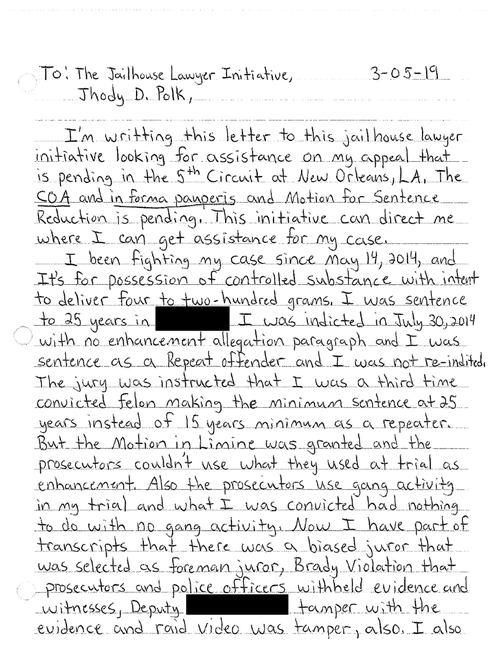 To: The Jailhouse Lawyer Initiative, 3-05-19
Jhody D. Polk,
I'm writting this letter to this jailhouse lawyer
initiative looking for assistance on my appeal that
is pending in the 5th Circuit at New Orleans, LA. The
COA and in forma pauperis and Motion for Sentence
Reduction is pending. This initiative can direct me
where I can get assistance for my case.
I been fighting my case since May 14, 2014, and
It's for possession of controlled substance with intent
to deliver four to two-hundred grams. I was sentence
to 25 years in I was indicted in July 30, 2014
with no enhancement allegation paragraph and I was
sentence as a Repeat offender and I was not re-indited.
The jury was instructed that I was a third time
convicted felon making the minimum sentence at 25
years instead of 15 years minimum as a repeater.
But the Motion in Limine was granted and the
prosecutors couldn't use what they used at trial as
enhancement. Also the prosecutors use gang activity
in my trial and what I was convicted had nothing
to do with no gang activity. Now I have part of
transcripts that there was a biased juror that
was selected as foreman juror, Brady Violation that
prosecutors and police officers withheld evidence and
witnesses, Deputy tamper with the
evidence and raid video was tamper, also. I also